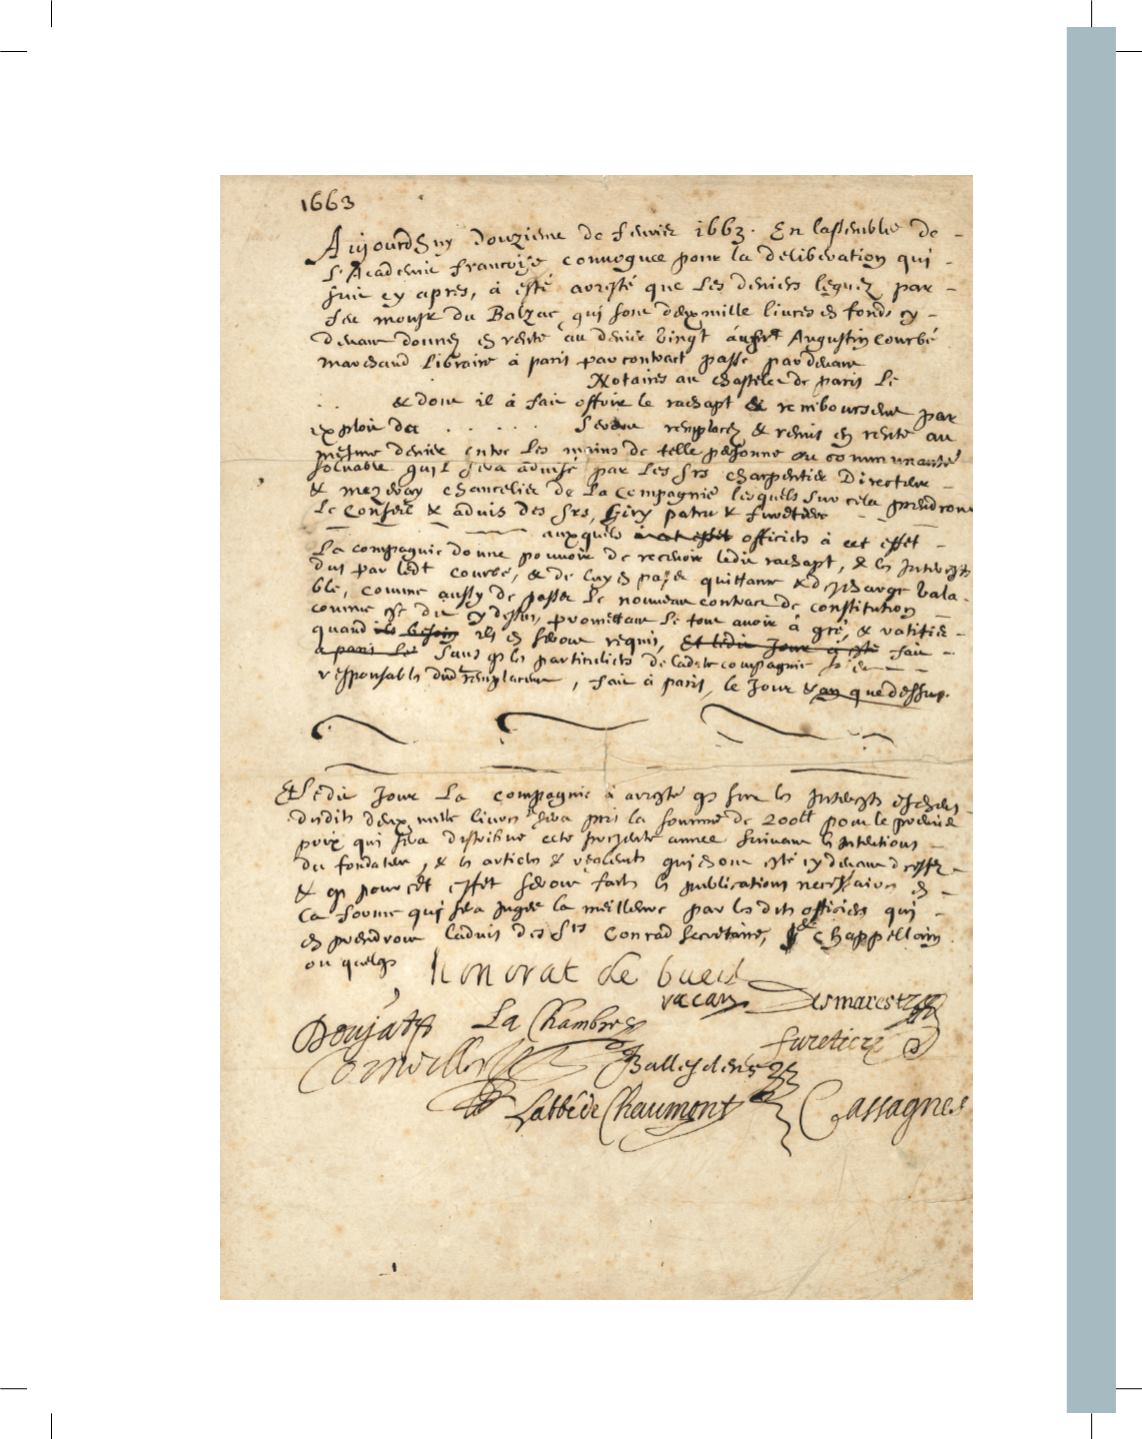 1663
Aujourdhuy douzieme de fevrier 1663. En lassemblee de
l'Academie francoise convoquee pour la deliberation qui
suit cy apres, à esté arresté que les deniers leguez par
feu monsr du Balzac qui sont deux mille livres en fonds cy
devant donnez en rente au denier vingt Augustin Courbé
marchand libraire à paris par contract passé pardevant
Notaires au chastelet de paris le
& dont il à fait offrir le rachapt & remboursement par
exploit du seront remplacez & remis en rente au
mesme denier entre les mains de telle personne ou communauté
solvable quil sera advisé par les Srs charpentier Directeur
& mezeray chancelier de la Compagnie lesquels sur cela prendront
le Conseil & advis des Srs, Giry patru & furetiere
auxquels à cet effet officiers à cet effet
La compagnie donne pouvoir de recevoir ledit rachapt, & les Interests
dus par ledt Courbé, & de luy en payer quittance & descharge vala-
ble, comme aussy de passer le nouveau contract de constitution
comme est dit cy dessus, promettant le tout avoir à gré, & ratifier
quand ils en seront requis, Et ledit Jour à esté fait
a paris les Sans qs les particuliers de ladte compagnie
responsables dud remplacement, fait à paris, le Jour & an que dessus.
Et ledit Jour La compagnie à arresté qs sur les Interests escheus
desdits deux mille livres sera pris la somme de 200lt pour le premier
prix qui sera distribué cette presente année suivant les Intentions
du fondateur, & les articles & reglements qui en ont esté cy devant dressez
& qs pour cet effet seront faites les publications necessaires en
la forme qui sera jugée la meilleure par les dits officiers qui
en prendront ladvis des Srs Conrad secretaire, Chappellain
ou quelqs
honorat de bueil
racan Desmarestz
Doujat La Chambre
furetiere
Corneille Ballesdens
Labbé de Chaumont Cassagnes